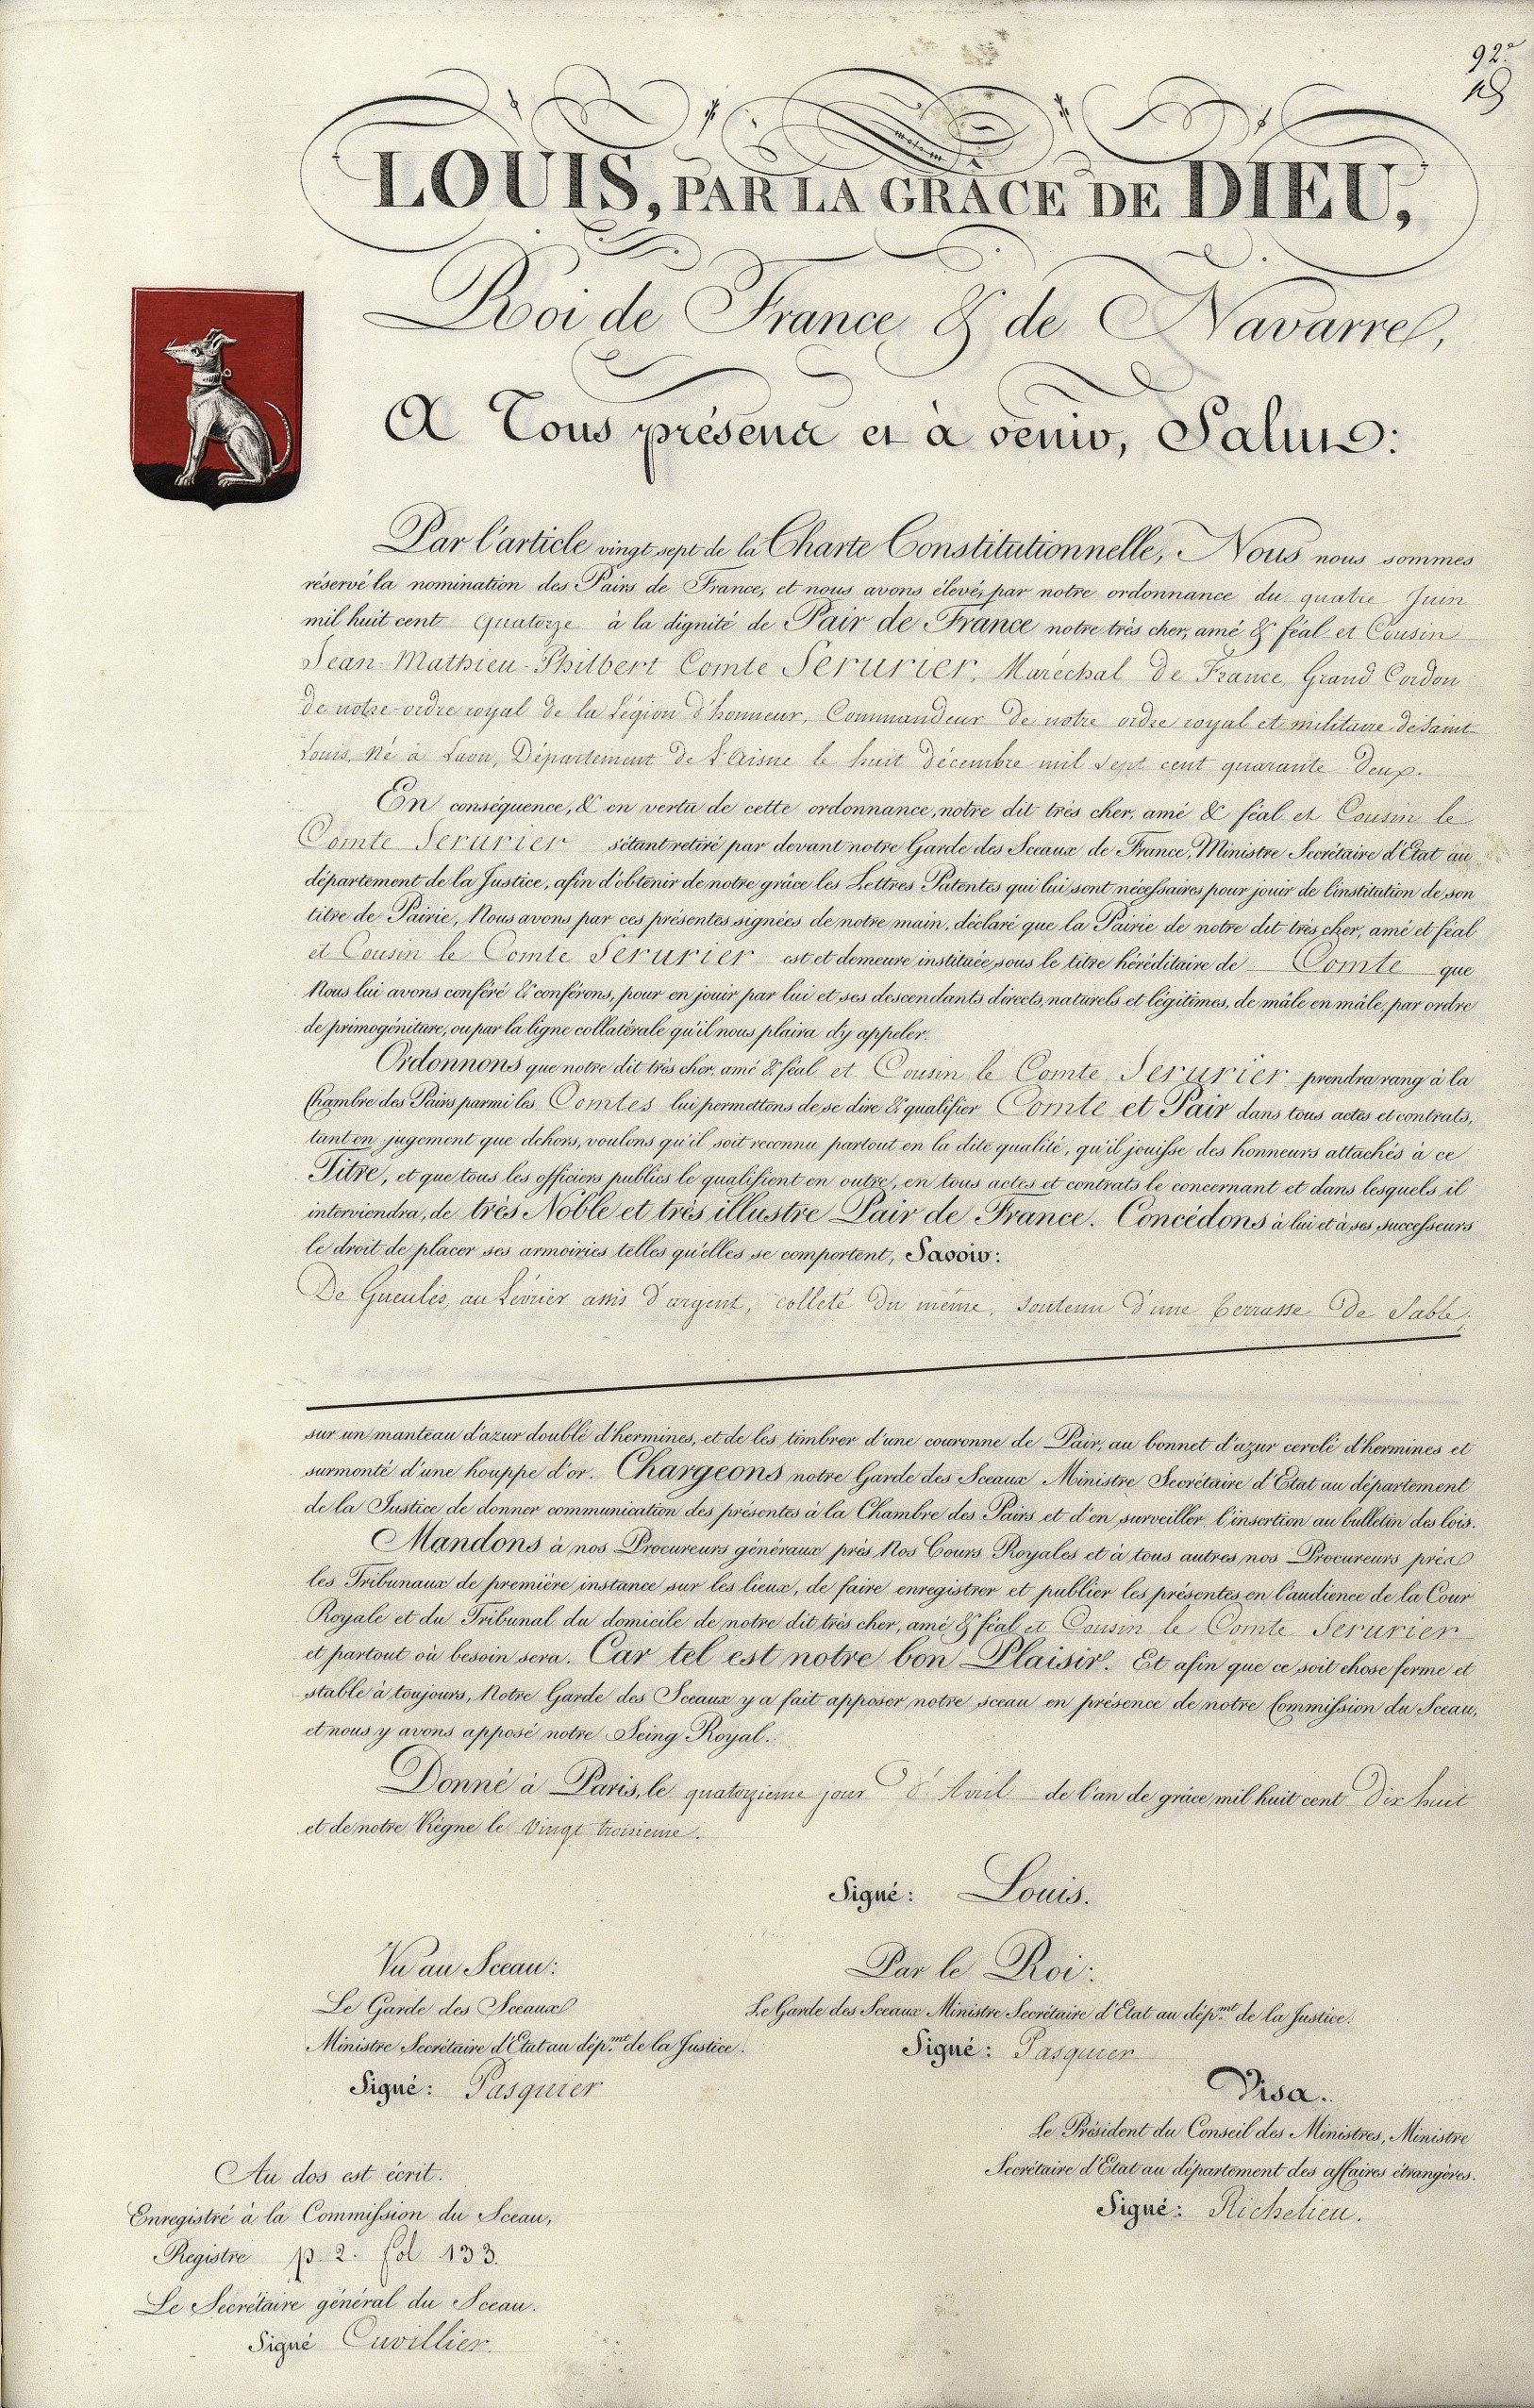 92e
LOUIS, PAR LA GRÂCE DE DIEU,
Roi de France & de Navarre,
A Tous présens et à venir, Salut:
Par l'article vingt sept de la Charte Constitutionnelle, Nous nous sommes
réservé la nomination des Pairs de France, et nous avons élevé, par notre ordonnance du quatre Juin
mil huit cent quatorze à la dignité de Pair de France notre très cher, amé & féal et Cousin
Jean-Mathieu-Philbert Comte Serurier, Maréchal de France, Grand Cordon
de notre ordre royal de la Légion d'honneur, Commandeur de notre ordre royal et militaire de Saint-
Louis, Né à Laon, Département de l'Aisne le huit décembre mil sept cent quarante deux.
En conséquence, & en vertu de cette ordonnance, notre dit très cher, amé & féal et Cousin le
Comte Serurier s'étant retiré par devant notre Garde des Sceaux de France, Ministre Secrétaire d'Etat au
département de la Justice, afin d'obtenir de notre grâce les Lettres Patentes qui lui sont nécessaires pour jouir de l'institution de son
titre de Pairie, Nous avons par ces présentes signées de notre main, déclaré que la Pairie de notre dit très cher, amé et féal
et Cousin le Comte Serurier est et demeure instituée sous le titre héréditaire de Comte que
Nous lui avons conféré & conférons, pour en jouir par lui et ses descendants directs, naturels et légitimes, de mâle en mâle, par ordre
de primogéniture, ou par la ligne collatérale qu'il nous plaira d'y appeler.
Ordonnons que notre dit très cher, amé & féal et Cousin le Comte Serurier prendra rang à la
Chambre des Pairs parmi les Comtes lui permettons de se dire & qualifier Comte et Pair dans tous actes et contrats,
tant en jugement que dehors, voulons qu'il soit reconnu partout en la dite qualité, qu'il jouisse des honneurs attachés à ce
Titre, et que tous les officiers publics le qualifient en outre, en tous actes et contrats le concernant et dans lesquels il
interviendra, de très Noble et très illustre Pair de France. Concédons à lui et à ses successeurs
le droit de placer ses armoiries telles qu'elles se comportent, Savoir:
De Gueules, au Lévrier assis d'argent, colleté du même, soutenu d'une terrasse de Sable;
sur un manteau d'azur doublé d'hermines, et de les timbrer d'une couronne de Pair, au bonnet d'azur cerclé d'hermines et
surmonté d'une houppe d'or. Chargeons notre Garde des Sceaux Ministre Secrétaire d'Etat au département
de la Justice de donner communication des présentes à la Chambre des Pairs et d'en surveiller l'insertion au bulletin des lois.
Mandons à nos Procureurs généraux près Nos Cours Royales et à tous autres nos Procureurs près
les Tribunaux de première instance sur les lieux, de faire enregistrer et publier les présentes en l'audience de la Cour
Royale et du Tribunal du domicile de notre dit très cher, amé & féal et Cousin le Comte Serurier
et partout où besoin sera. Car tel est notre bon Plaisir. Et afin que ce soit chose ferme et
stable à toujours, Notre Garde des Sceaux y a fait apposer notre sceau en présence de notre Commission du Sceau,
et nous y avons apposé notre Seing Royal.
Donné à Paris, le quatorzieme jour d'Avril de l'an de grâce mil huit cent Dix huit
et de notre Règne le vingt troisieme.
Signé: Louis.
Vu au Sceau:
Le Garde des Sceaux
Ministre Secrétaire d'Etat au dép.mt de la Justice.
Signé: Pasquier
Par le Roi:
Le Garde des Sceaux Ministre Secrétaire d'Etat au dép.mt de la Justice.
Signé: Pasquier
Visa.
Le Président du Conseil des Ministres, Ministre
Secrétaire d'Etat au département des affaires étrangères.
Signé: Richelieu.
Au dos est écrit.
Enregistré à la Commission du Sceau,
Registre p. 2. fol 133.
Le Secrétaire général du Sceau.
Signé Cuvillier.